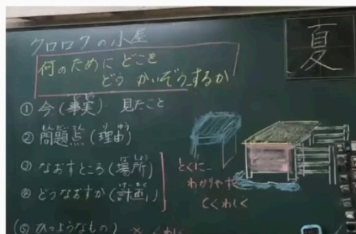 クロロクの小屋
何のために どこを
どう かいぞうするか
夏
① 今(事実) 見たこと
② 問題点(理由)
③ なおすところ(場所)
④ どうなおすか(計画)
とくに
わかりやすく
くわしく